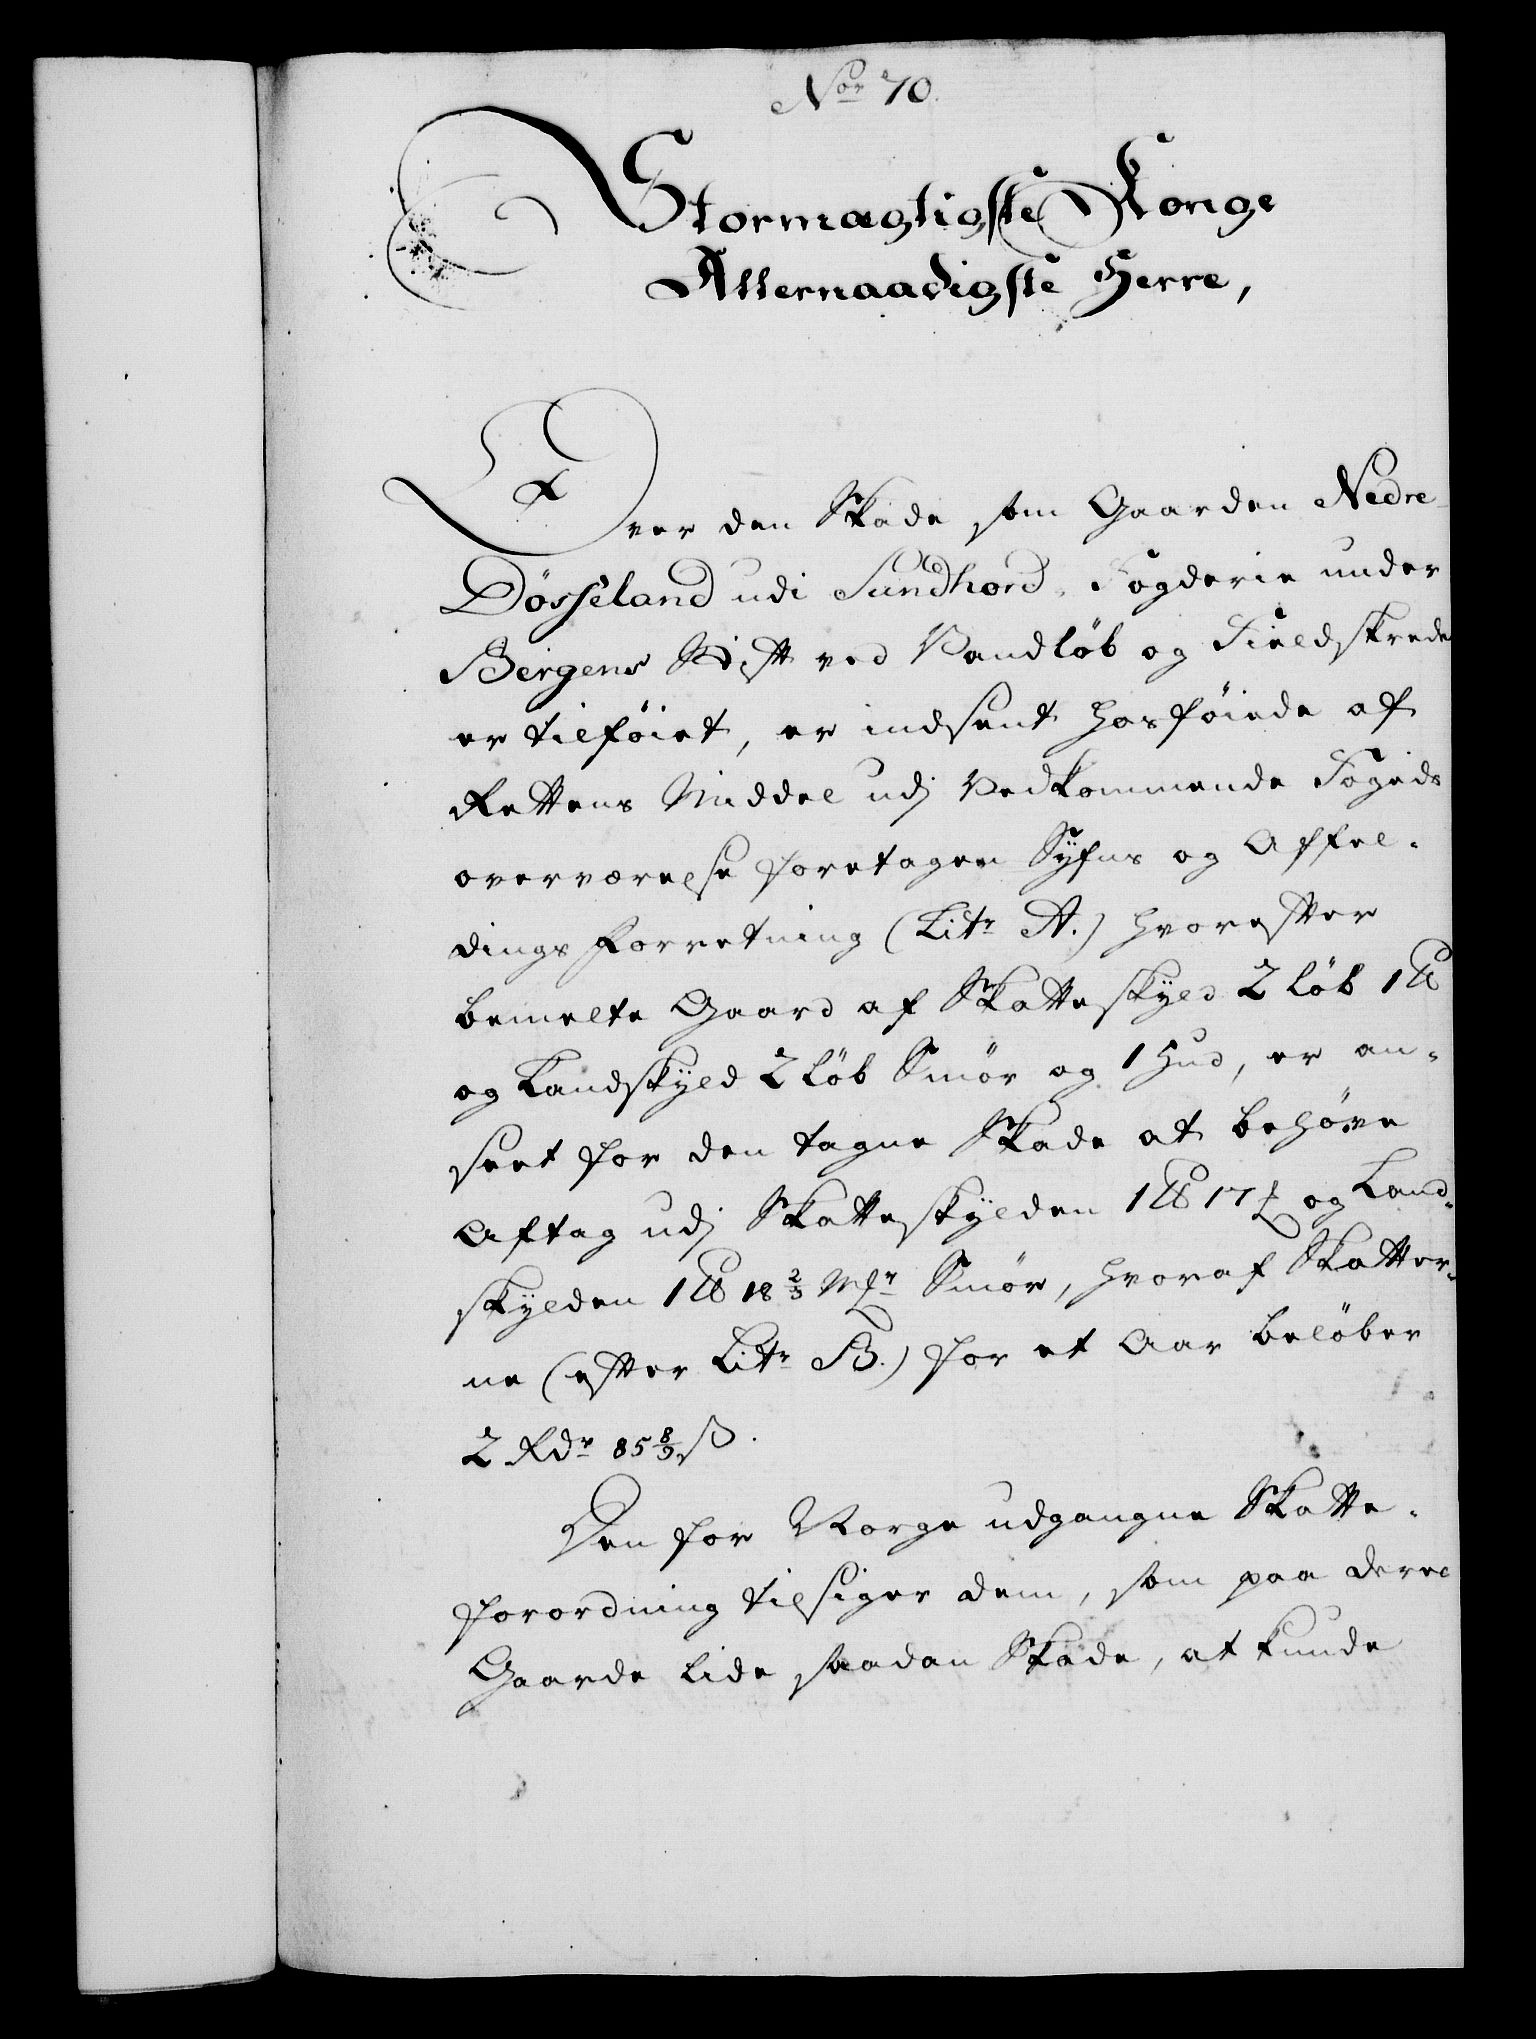 Nor 70.
Stormægtigste Konge
Allernaadigste Herre,
Over den Skade som Gaarden Nedre-
Dösseland udi Sundhord. Fogderie under
Bergens Stift ved Vandlöb og Fieldskrede
er tilföiet, er indsent hosföiede af
Rettens Middel udj Vedkommende Fogeds
overværelse foretagen Syhns og Affel-
dings Forretning (Litr A.) hvorefter
bemelte Gaard af Skatteskyld 2 Löb 1 ℔
og Landskyld 2 Löb Smör og 1 Hud, er an-
seet for den tagne Skade at behöve
Aftag udj Skatteskylden 1 ℔ 17 ₰ og Land-
skylden 1 ℔ 18 2/3 Mkr Smör, hvoraf Skatter-
ne (efter Litr B.) for et Aar belöber
2 Rdr 85 8/9 ß.
Den for Norge udgangne Skatte-
forordning tilsiger dem, som paa deres
Gaarde lide saadan Skade, at kunde